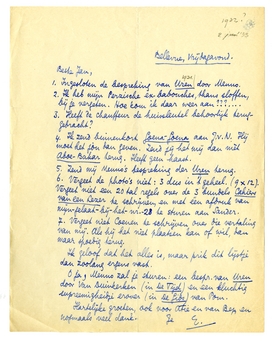 1932?
2 juni '33
Bellevue, Vrijdagavond.
Beste Jan,
1. Ingesloten de bespreking van Uren door Menno.
2. Ik heb mijn Perzische ex-babouches, thans sloffen,
bij je vergeten. Hoe kom ik daar weer aan???....
3. Heeft de chauffeur de huissleutel behoorlijk terug-
gebracht?
4. Ik zend binnenkort Goena-Goena aan J.v.N. Hij
moet het fijn kan geven. Zend jij mij dan niet
Aboe-Bakar terug. Heeft geen haast.
5. Zend mij Menno's bespreking der Uren terug.
6. Vergeet de photo's niet: 3 dles in 1 geheel. (9 x 12).
Vergeet niet een 20 tal regels over de 3 bundels
van een lezer te schrijven en met een afdruk van
te sturen aan Sander.
7. Vergeet niet Coenen te schrijven, over die vertaling
van mij. Als hij het niet plaatsen kan of wil, dan
maar spoedig terug.
Ik geloof dat het alles is, maar prik dit lijstje
dan zoolang ergens vast.
O ja, Menno zal je sturen: een bespr. van Uren
door Van Duinkerken (in De Tijd) en een kluchtig
over (in De Gids) van Pom.
Hartelijke groeten, ook voor Atie en van Bep en
nogmaals veel dank. Je
E.